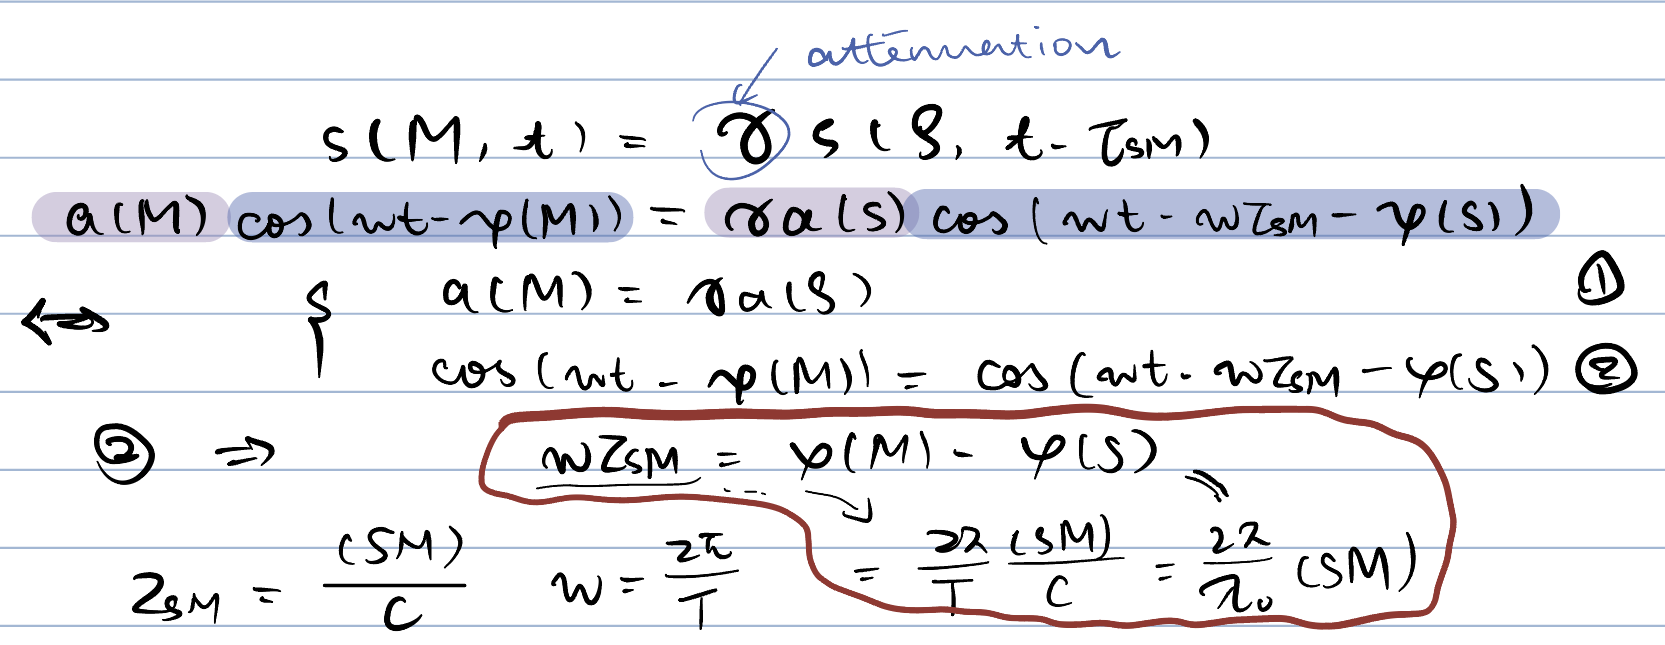 attenuation
s(M, t) = γ s(S, t - τ_SM)
a(M) cos(ωt - φ(M)) = γa(S) cos(ωt - ωτ_SM - φ(S))
↔ { a(M) = γa(S) ①
cos(ωt - φ(M)) = cos(ωt - ωτ_SM - φ(S)) ②
② ⇒ ωτ_SM = φ(M) - φ(S)
τ_SM = (SM)/C ω = 2π/T = 2π/T (SM)/C = 2π/λ₀ (SM)